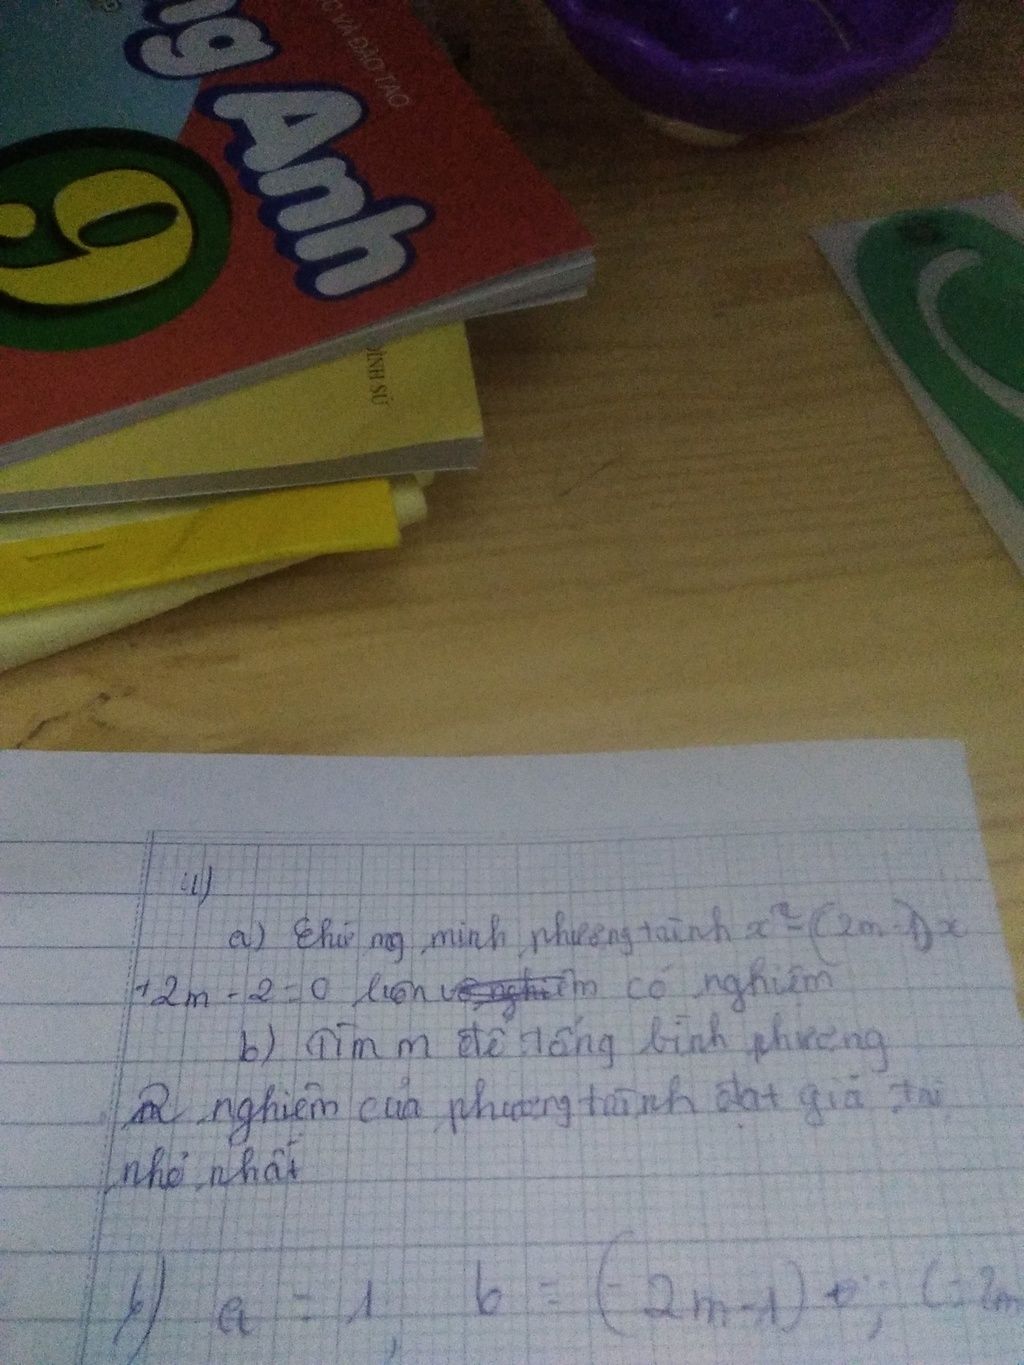 ng Anh
VÀ ĐÀO TẠO
9
ĐÌNH SỬ
a) Chứng minh phương trình x² - (2m - 1)x
+ 2m - 2 = 0 luôn có nghiệm
b) Tìm m để tổng bình phương
2 nghiệm của phương trình đạt giá trị
nhỏ nhất
b) a = 1, b = (-2m-1)